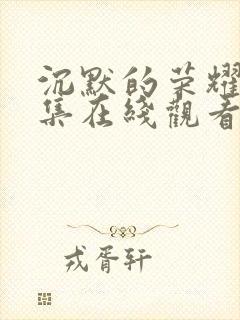 沉默的荣耀
集在线觀看
戎胥轩